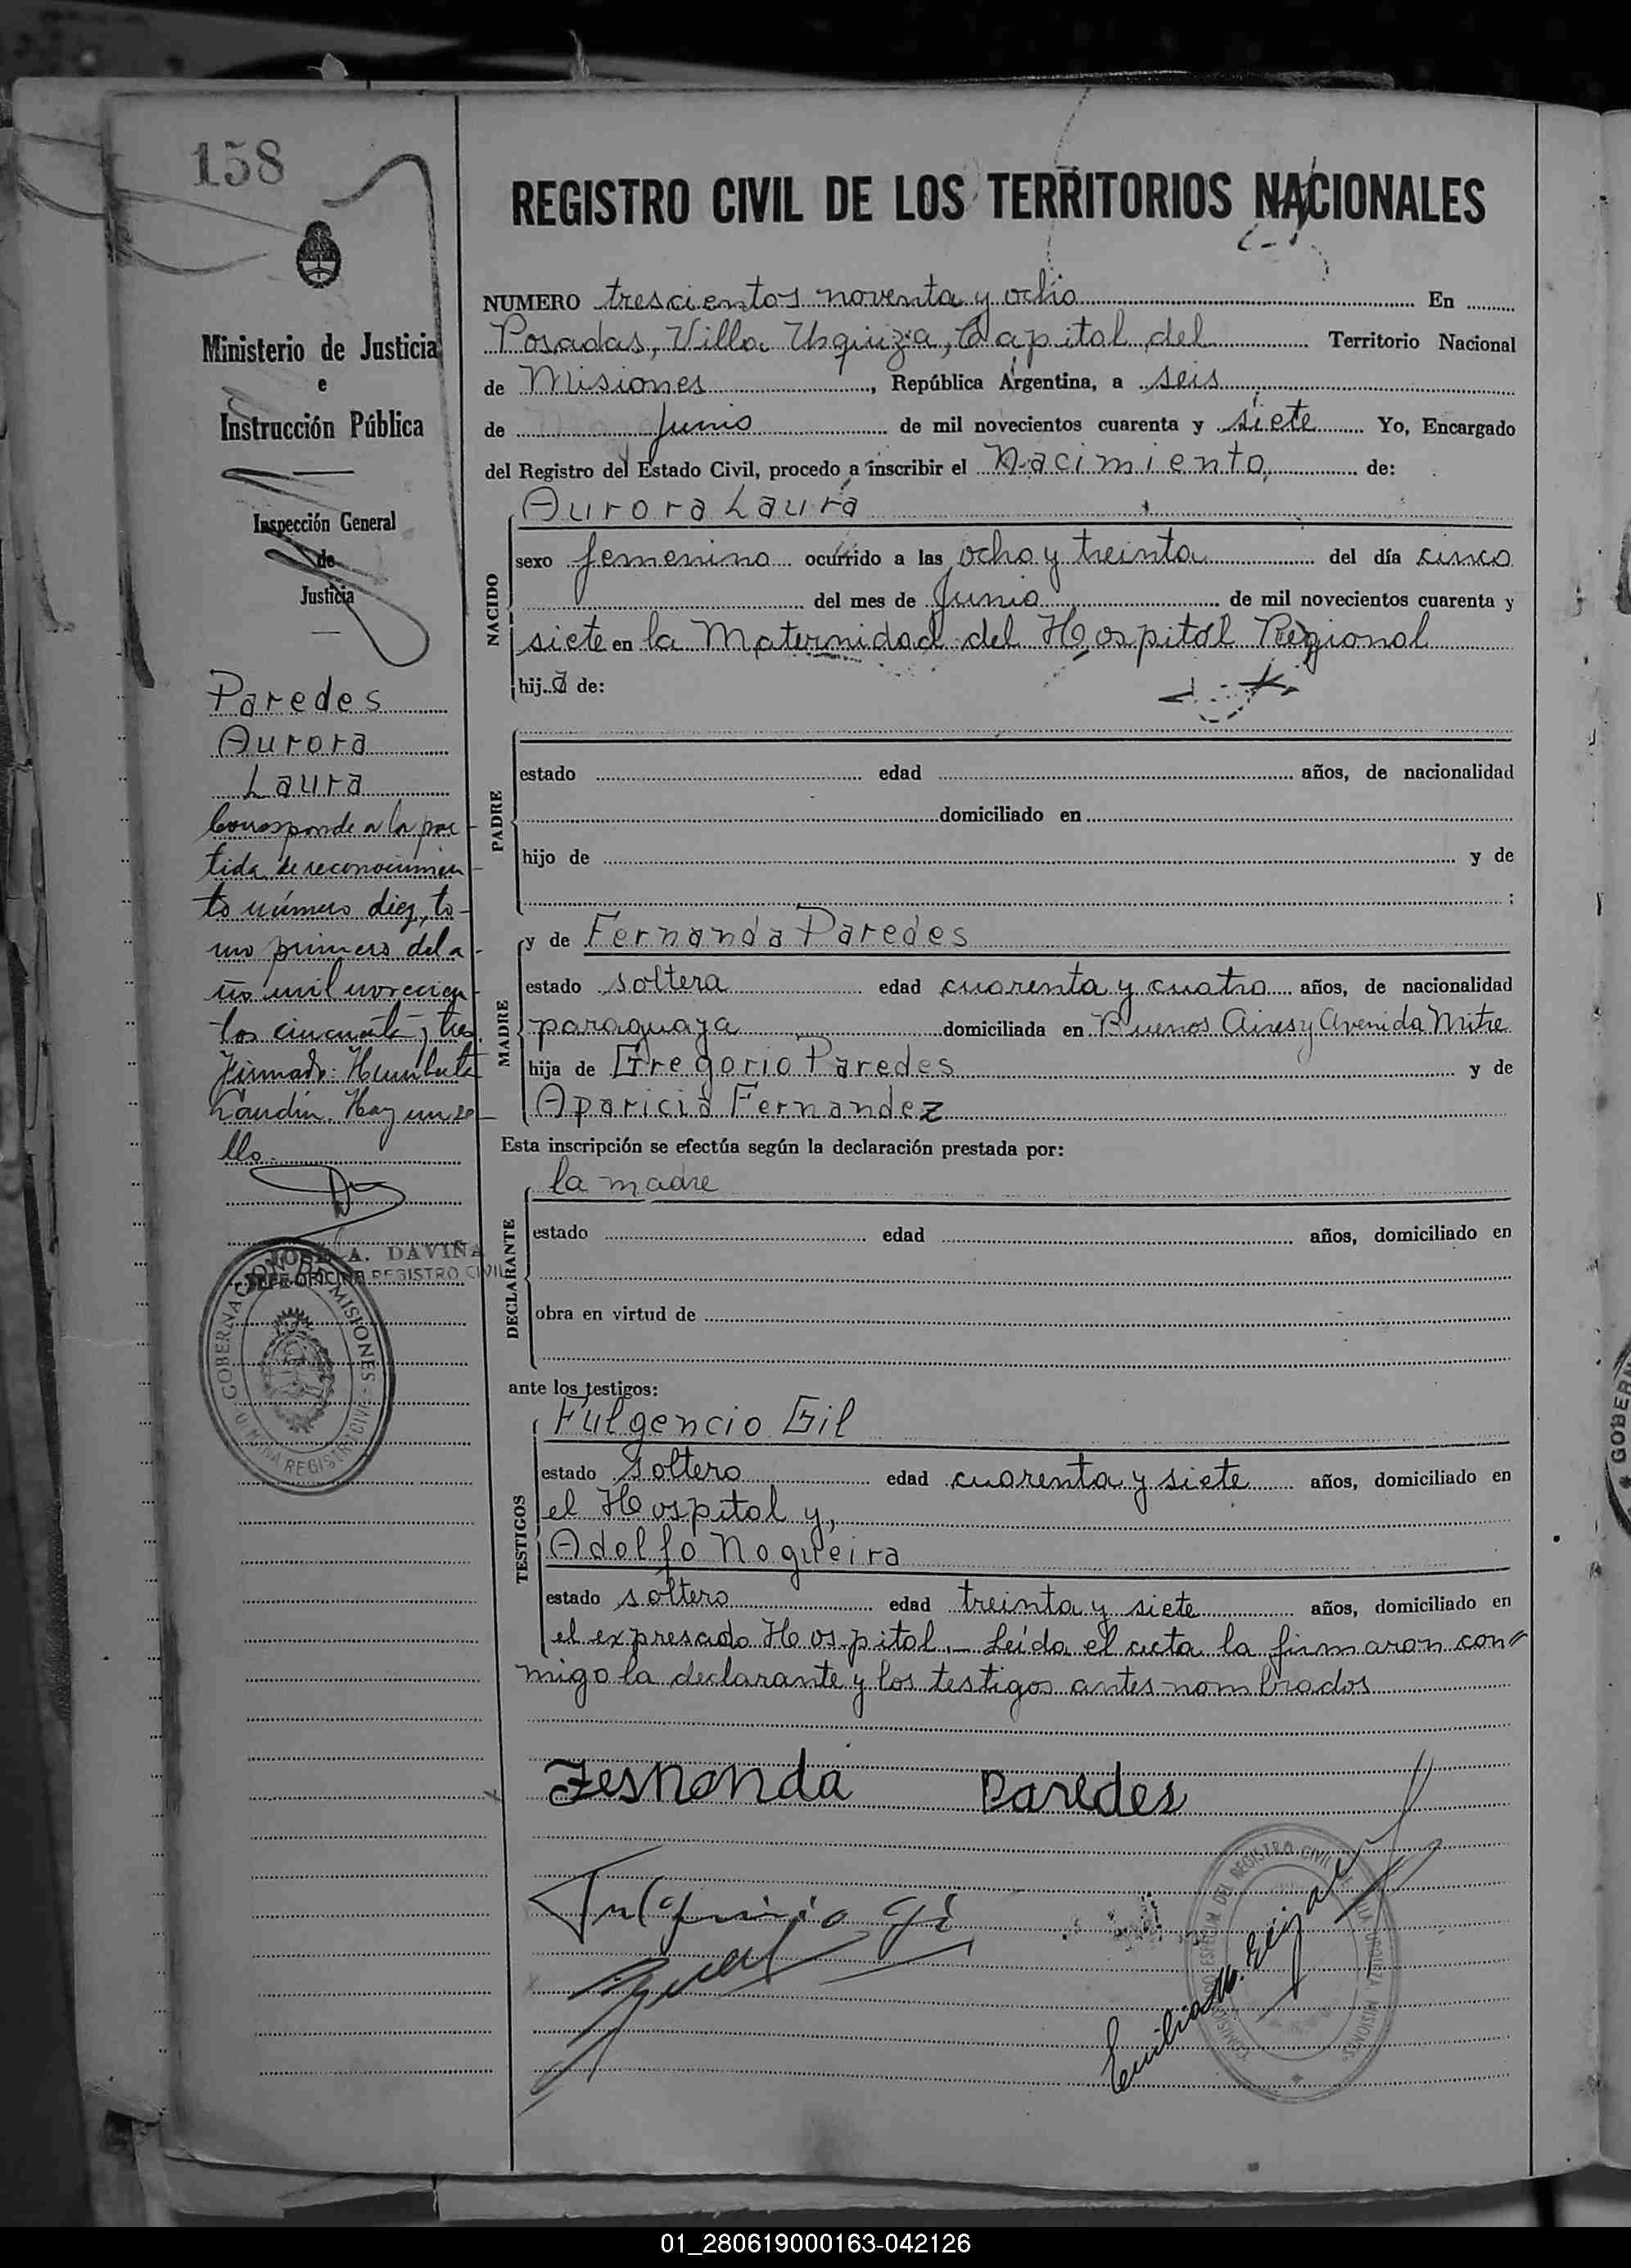 158
REGISTRO CIVIL DE LOS TERRITORIOS NACIONALES
Ministerio de Justicia
e
Instrucción Pública
Inspección General
de
Justicia
Paredes
Aurora
Laura
Corresponde a la par-
tida de reconocimien-
to número diez, to-
mo primero del a-
ño mil novecien-
tos cincuenta y tres.
Firmado: Humberto
Hay un se-
llo.
JOSE A. DAVIÑA
JEFE OFICINA REGISTRO CIVIL
GOBERNACION DE MISIONES
REGISTRO CIVIL
NUMERO trescientos noventa y ocho En
Posadas, Villa Urquiza, Capital del Territorio Nacional
de Misiones, República Argentina, a seis
de Junio de mil novecientos cuarenta y siete Yo, Encargado
del Registro del Estado Civil, procedo a inscribir el Nacimiento, de:
NACIDO
Aurora Laura
sexo femenino ocurrido a las ocho y treinta del día cinco
del mes de Junio de mil novecientos cuarenta y
siete en la Maternidad del Hospital Regional
hija de:
PADRE
estado edad años, de nacionalidad
domiciliado en
hijo de y de
;
MADRE
y de Fernanda Paredes
estado soltera edad cuarenta y cuatro años, de nacionalidad
paraguaya domiciliada en Buenos Aires y Avenida Mitre
hija de Gregorio Paredes y de
Aparicia Fernandez
Esta inscripción se efectúa según la declaración prestada por:
DECLARANTE
la madre
estado edad años, domiciliado en
obra en virtud de
ante los testigos:
TESTIGOS
Fulgencio Gil
estado soltero edad cuarenta y siete años, domiciliado en
el Hospital y,
Adolfo Nogueira
estado soltero edad treinta y siete años, domiciliado en
el expresado Hospital. - Leída el acta la firmaron con=
migo la declarante y los testigos antes nombrados
Fernanda Paredes
Fulgencio Gil
DEL REGISTRO CIVIL
MISIONES
GOBER
01_280619000163-042126